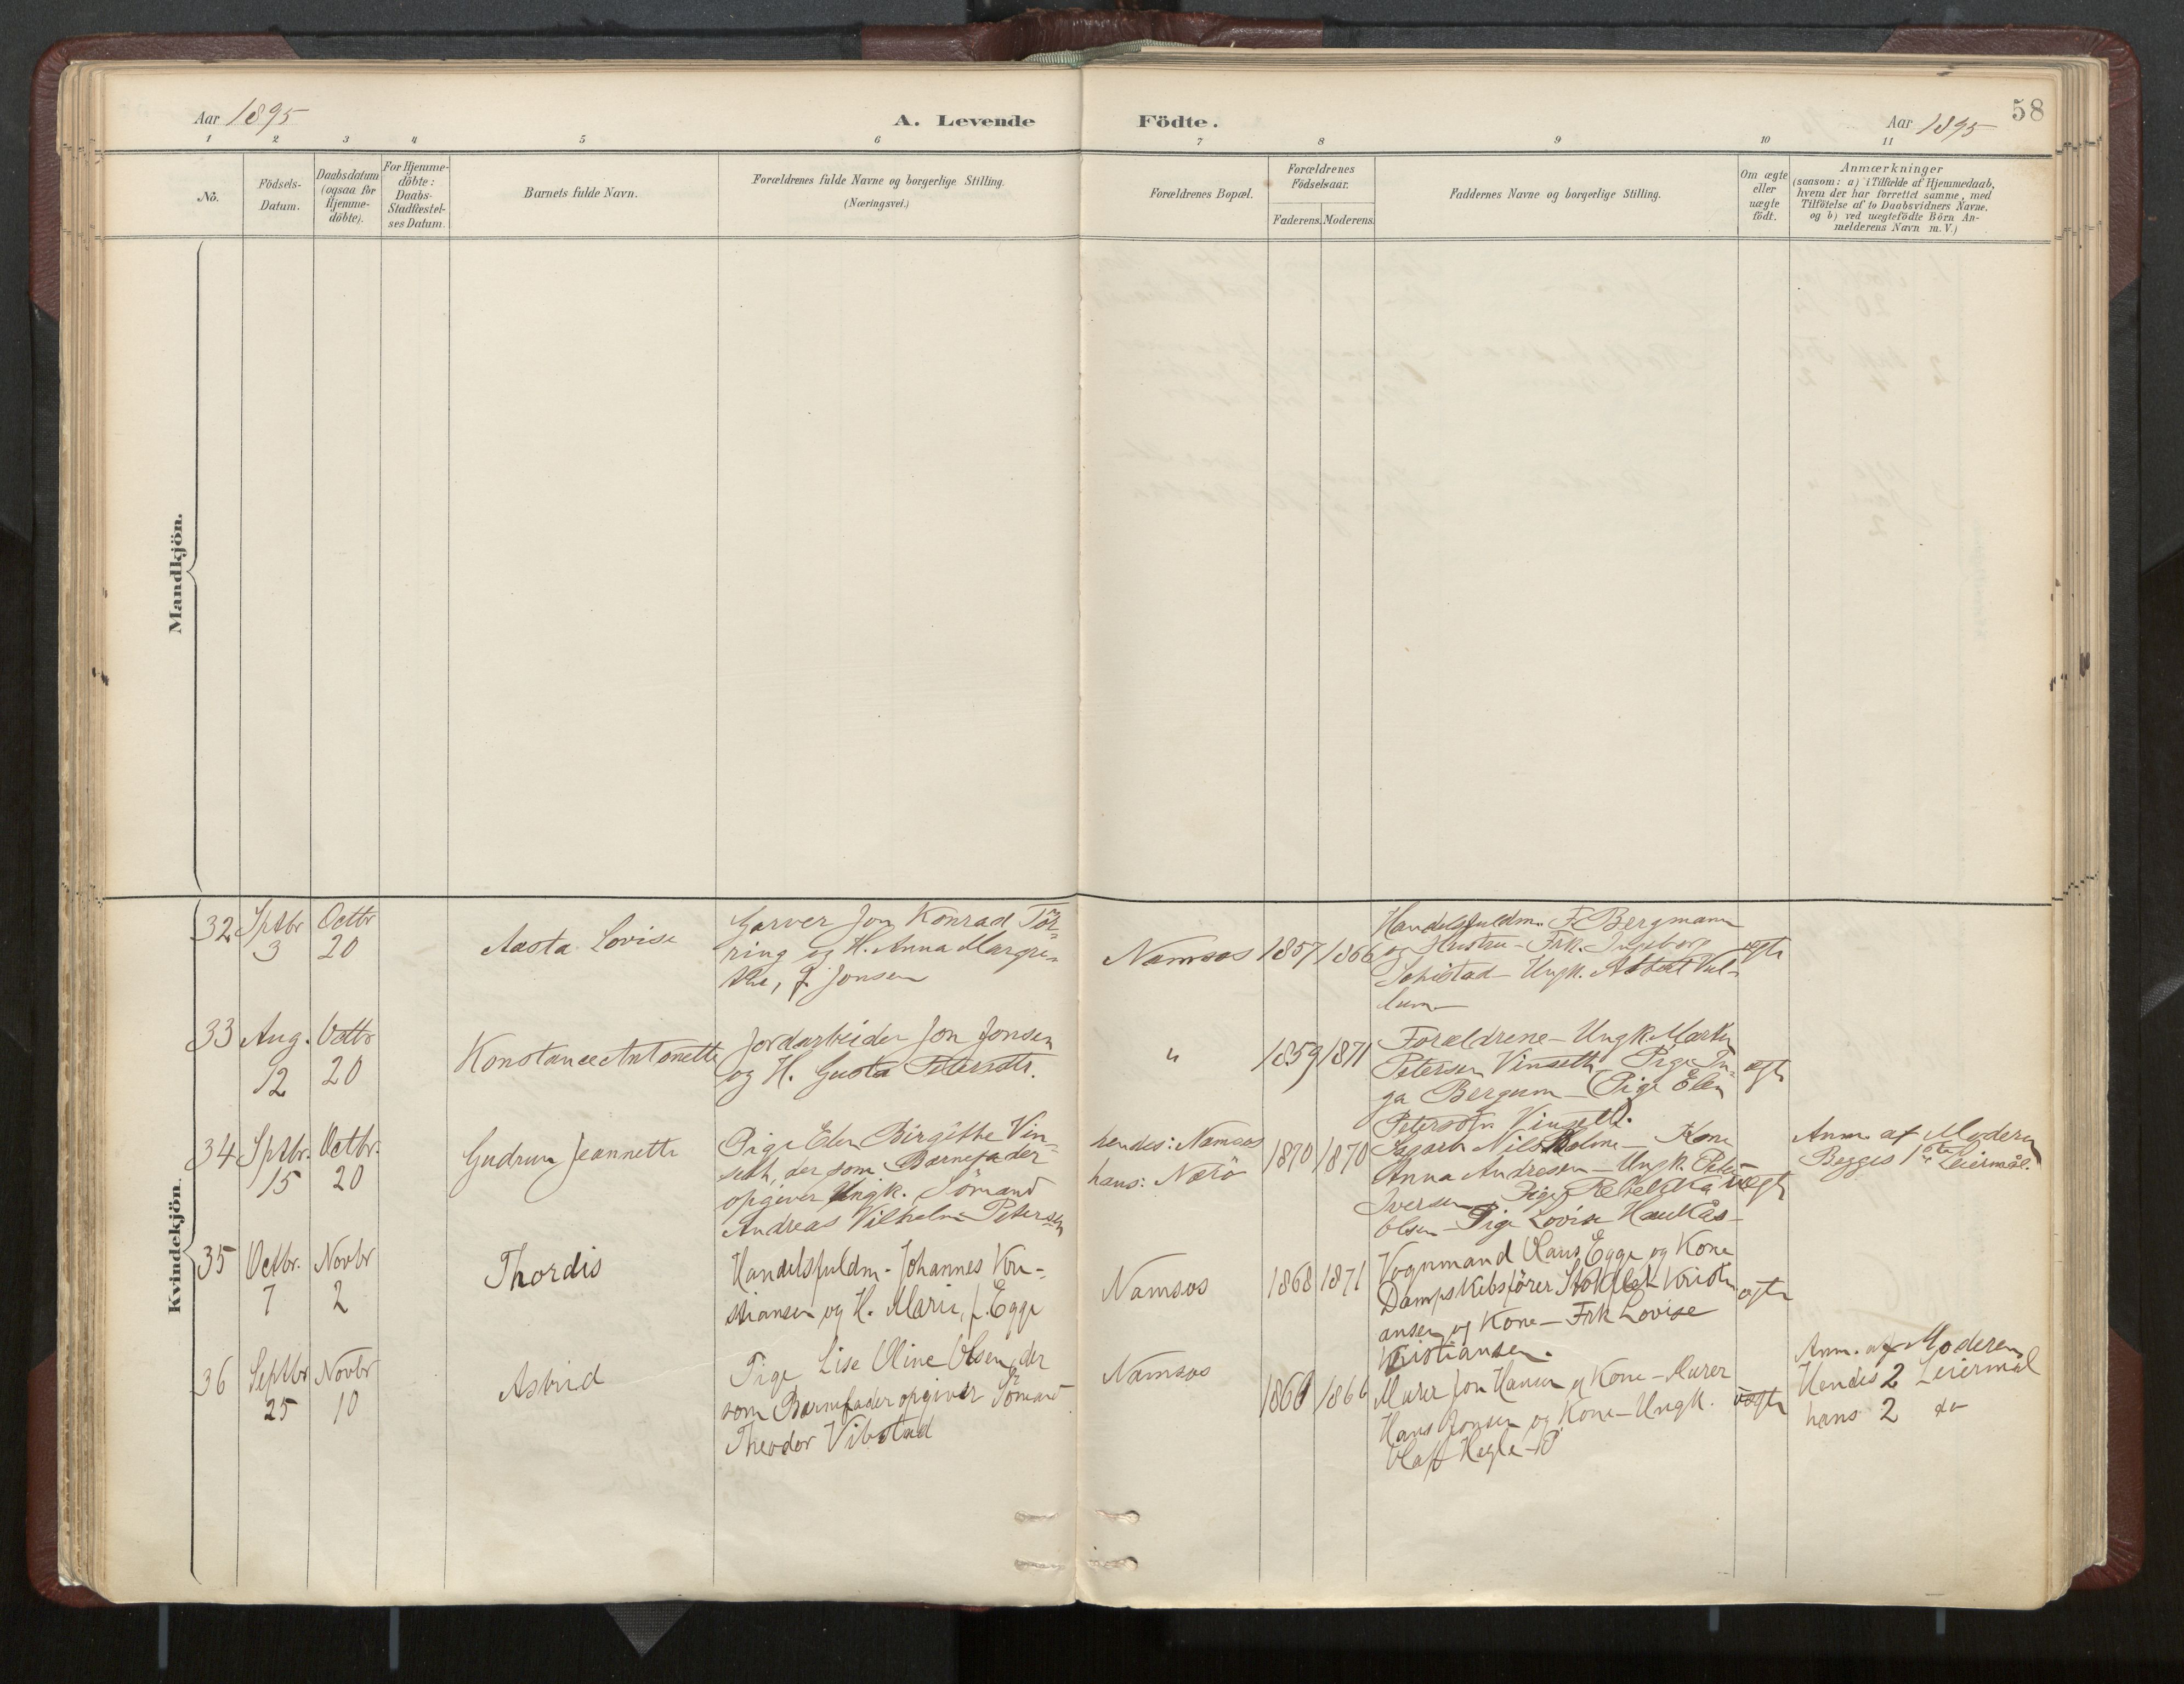 Aar 1895
A. Levende Födte.
Aar 1895
58
1 2 3 4 5 6 7 8 9 10 11
No.
Födsels-
Datum.
Daabsdatum
(ogsaa for
Hjemme-
döbte).
For Hjemme-
döbte:
Daabs-
Stadfæstel-
ses Datum.
Barnets fulde Navn.
Forældrenes fulde Navne og borgerlige Stilling.
(Næringsvei.)
Forældrenes Bopæl.
Forældrenes
Födselsaar.
Faderens. Moderens.
Faddernes Navne og borgerlige Stilling.
Om ægte
eller
uægte
födt.
Anmærkninger
(saasom: a) i Tilfælde af Hjemmedaab,
hvem der har forrettet samme, med
Tilföielse af to Daabsvidners Navne.
og b) ved uægtefödte Börn An-
melderens Navn m. V.)
Mandkjön.
Kvindekjön.
32
Sptbr
3
Octbr
20
Aasta Lovise
Garver Jon Konrad Tör-
ring og H. Anna Margre-
the, f. Jonsen
Namsos
1857
1866
Handelsfuldm. F. Bergmann
og Hustru - Frk. Ingeborg
Schistad - Ungk. Albert Vul-
lum
ægte
33
Aug.
12
Octbr
20
Konstance Antonette
Jordarbeider Jon Jonsen
og H. Gusta Petersdtr.
"
1859
1871
Forældrene - Ungk. Martin
Petersen Vinseth - Pige In-
ga Bergum - Pige Elen
Petersdtr Vinseth.
ægte
34
Sptbr.
15
Octbr.
20
Gudrun Jeannette
Pige Elen Birgithe Vin-
seth, der som Barnefader
opgiver Ungk. Sömand
Andreas Vilhelm Petersen
hendes: Namsos
hans: Nærö
1870
1870
Sagarb. Nils Holme - Kone
Anna Andresen - Ungk. Peter
Iversen - Pige Rebekka
Olsen - Pige Lovise Haukås -
uægte
Anm. af Moderen
Begges 1ste Leiermål.
35
Octbr.
7
Novbr
2
Thordis
Handelsfuldm. Johannes Kri-
stiansen og H. Marie, f. Egge
Namsos
1868
1871
Vognmand Claus Egge og Kone
Dampskibsförer Stokfleth Kristi
ansen og Kone - Frk Lovise
Kristiansen.
ægte
36
Septbr
25
Novbr
10
Astrid
Pige Lise Oline Olsen, der
som Barnefader opgiver Sömand
Theodor Vibstad
Namsos
1866
1866
Murer Jon Hansen og Kone - Murer
Hans Jonsen og Kone - Ungk.
Olaf Hegle
uægte
Anm. af Moderen
Hendes 2 Leiermål
hans 2 do